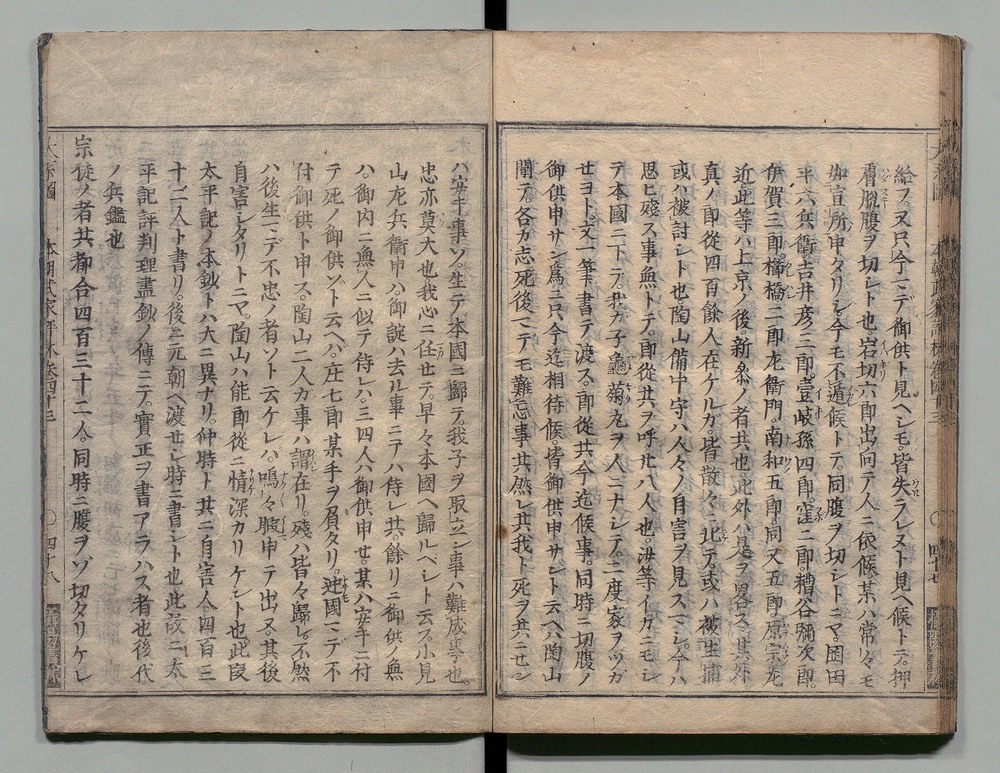 給フ。又只今マデ御供ト見ヘシモ皆失ラレヌト見ヘ候トテ。押
膚脱腹ヲ切レト也。岩切六郎出向テ人ニ依候。某ハ常々モ
如宣所申タリシ。今モ不遁候トテ。同腹ヲ切レトニマ。岡田
平六兵衛吉井彦三郎。壹岐孫四郎。窪二郎。糟谷彌次郎。
伊賀三郎。橋橋二郎左衛門南和五郎。同又五郎。原宗左
近此等ハ上京ノ後。新参ノ者共也。此外ハ是ヲ畧ス。其外
真ノ郎従四百餘人在ケルガ。皆散々ニ北テ。或ハ被生捕
或ハ被討レト也。陶山備中守ハ人々ノ自害ヲ見スマシ。今ハ
思ヒ殘ス事無トテ。郎従共ヲ呼ヒ八人也。汝等イカニモシ
テ本國ニ下テ。我ガ子龜菊丸ヲ人ニナシテ。二度家ヲツガ
セヨト。文一筆書テ渡ス。郎従共今迄候事。同時ニ切腹ノ
御供申サン為ニ只今迄相待候。皆御供申サントエヘハ陶山
聞テ。各ガ志死後マテモ難忘事共。然レ共我ト死ヲ共ニセン
ハ安キ事ソ。生テ本國ニ歸テ。我子ヲ取立ン事ハ難成事也。
忠亦莫大也。我心ニ任セテ。早々本國ヘ歸ルベシト云ス。小見
山左兵衛申ハ御諚ハ去ル事ニテハ侍レ共。餘リニ御供ノ無
ハ。御内ニ無人ニ似テ侍レハ。三四人ハ御供申セ。某ハ安キニ付
テ死ノ御供ゾト云ヘハ。庄七郎某手ヲ負タリ。迚國マデ不
付御供ト申ス。陶山二人ガ事ハ謂在リ。殘ハ皆々歸レ。不然
ハ後生マデ不忠ノ者ソト云ケレハ。嗚々腋申テ出ヌ。其後
自害シタリトニマ。陶山ハ能郎従ニ情深カリケレト也。此段
太平記ノ本鈔トハ大ニ異ナリ。仲時ト共ニ自害人四百三
十二人ト書リ。後ニ元朝ヘ渡セシ時ニ書シト也。此故ニ太
平記評判理盡鈔ノ傳ニテ。實正ヲ書アラハス者也。後代
ノ兵鑑也
宗徒ノ者共。都合四百三十二人。同時ニ腹ヲゾ切タリケレ
四十七
四十八